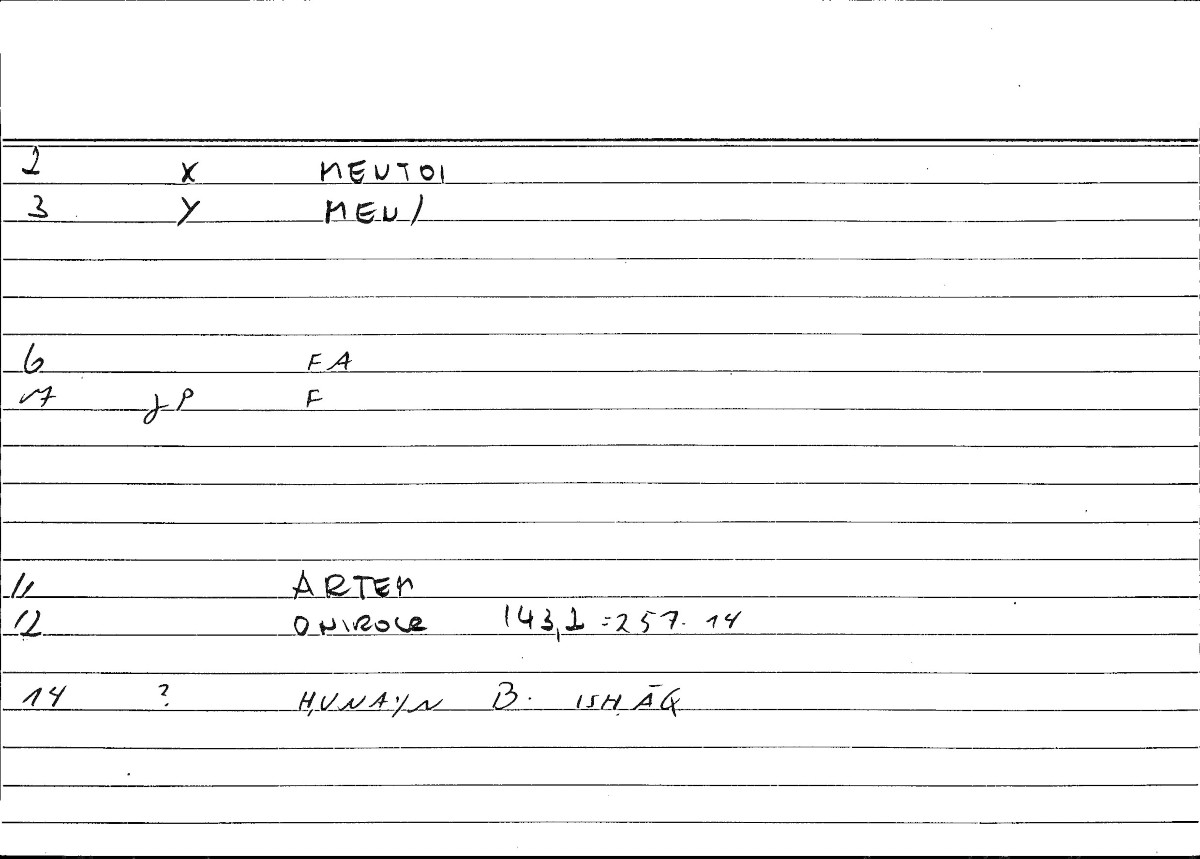 2 X MENTOI
3 Y MEN/
6 FA
17 γP F
11 ARTEM
12 ONIROCR 143,1 = 257. 14
14 ? ḤUNAYN B. ISḤĀQ